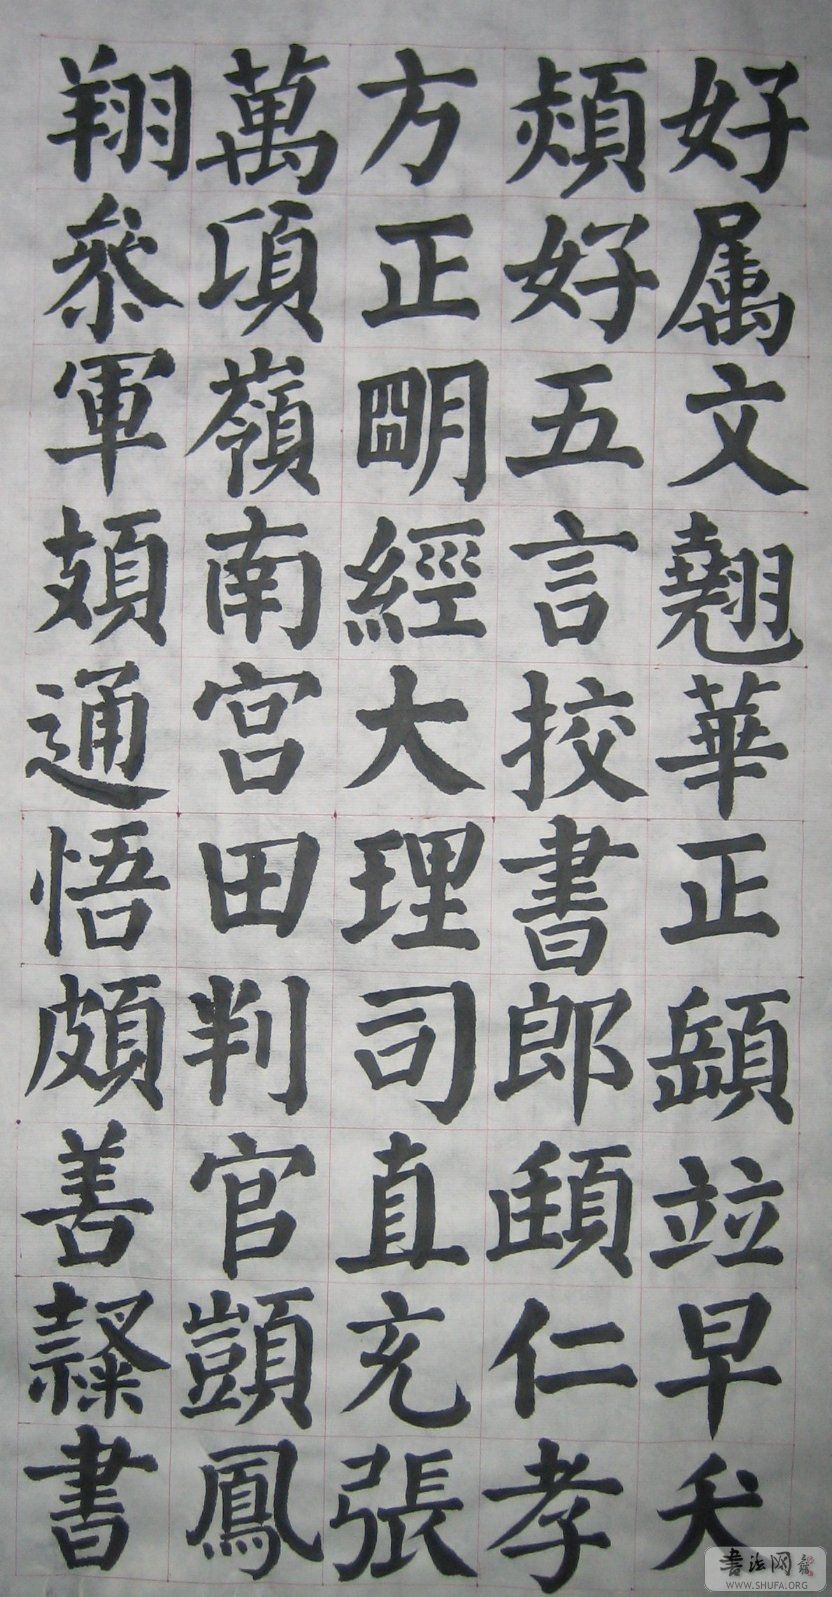 好属文翹華正竝早夭
熲好五言挍書郎頲仁孝
方正明經大理司直充張
萬頃嶺南宮田判官顗鳳
翔叅軍頍通悟頗善隸書
書法网
WWW.SHUFA.ORG